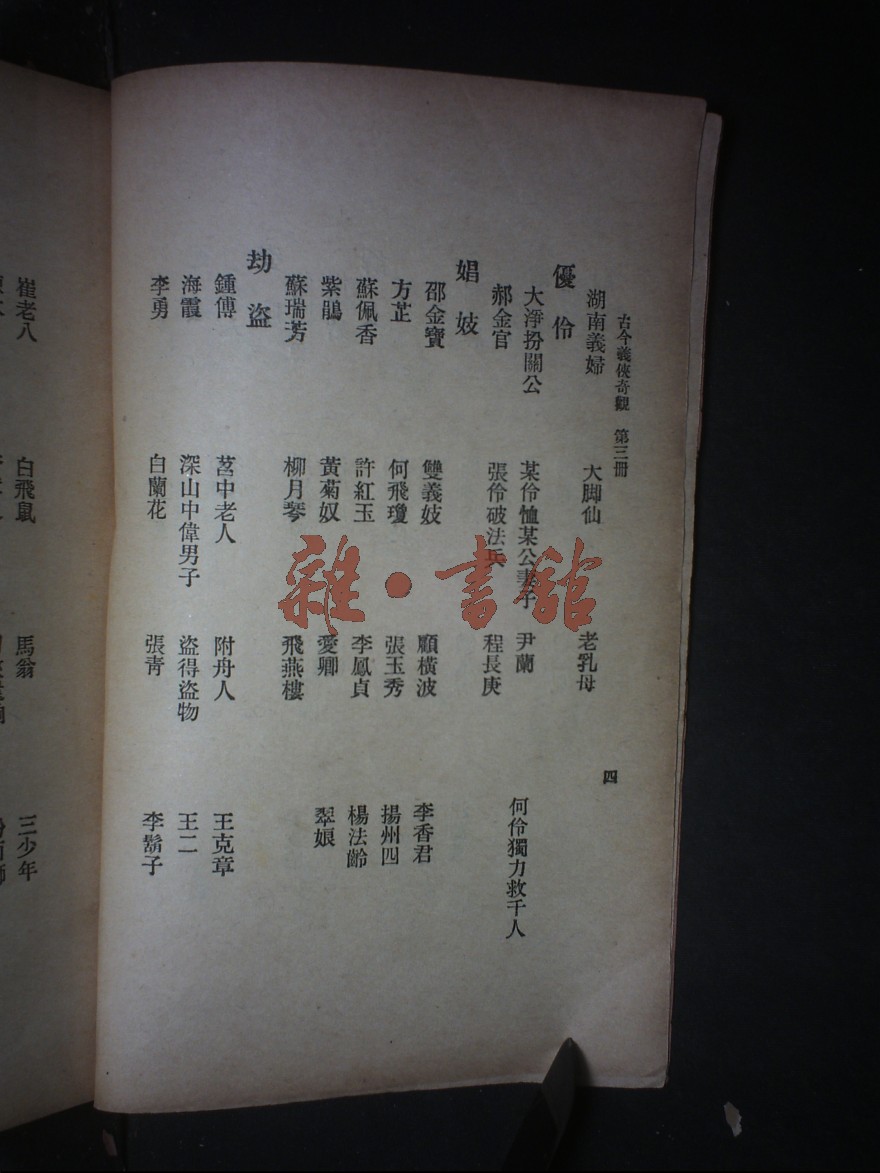 古今義俠奇觀　第三冊　四
湖南義婦　大脚仙　老乳母
優伶
大淨扮關公　某伶恤某公妻子　尹蘭　何伶獨力救千人
郝金官　張伶破法兵　程長庚
娼妓
邵金寶　雙義妓　顧橫波　李香君
方芷　何飛瓊　張玉秀　揚州四
蘇佩香　許紅玉　李鳳貞　楊法齡
紫鵑　黃菊奴　愛卿　翠娘
蘇瑞芳　柳月琴　飛燕樓
劫盜
鍾傅　莒中老人　附舟人　王克章
海霞　深山中偉男子　盜得盜物　王二
李勇　白蘭花　張青　李鬍子
崔老八　白飛鼠　馬翁　三少年
雜·書館